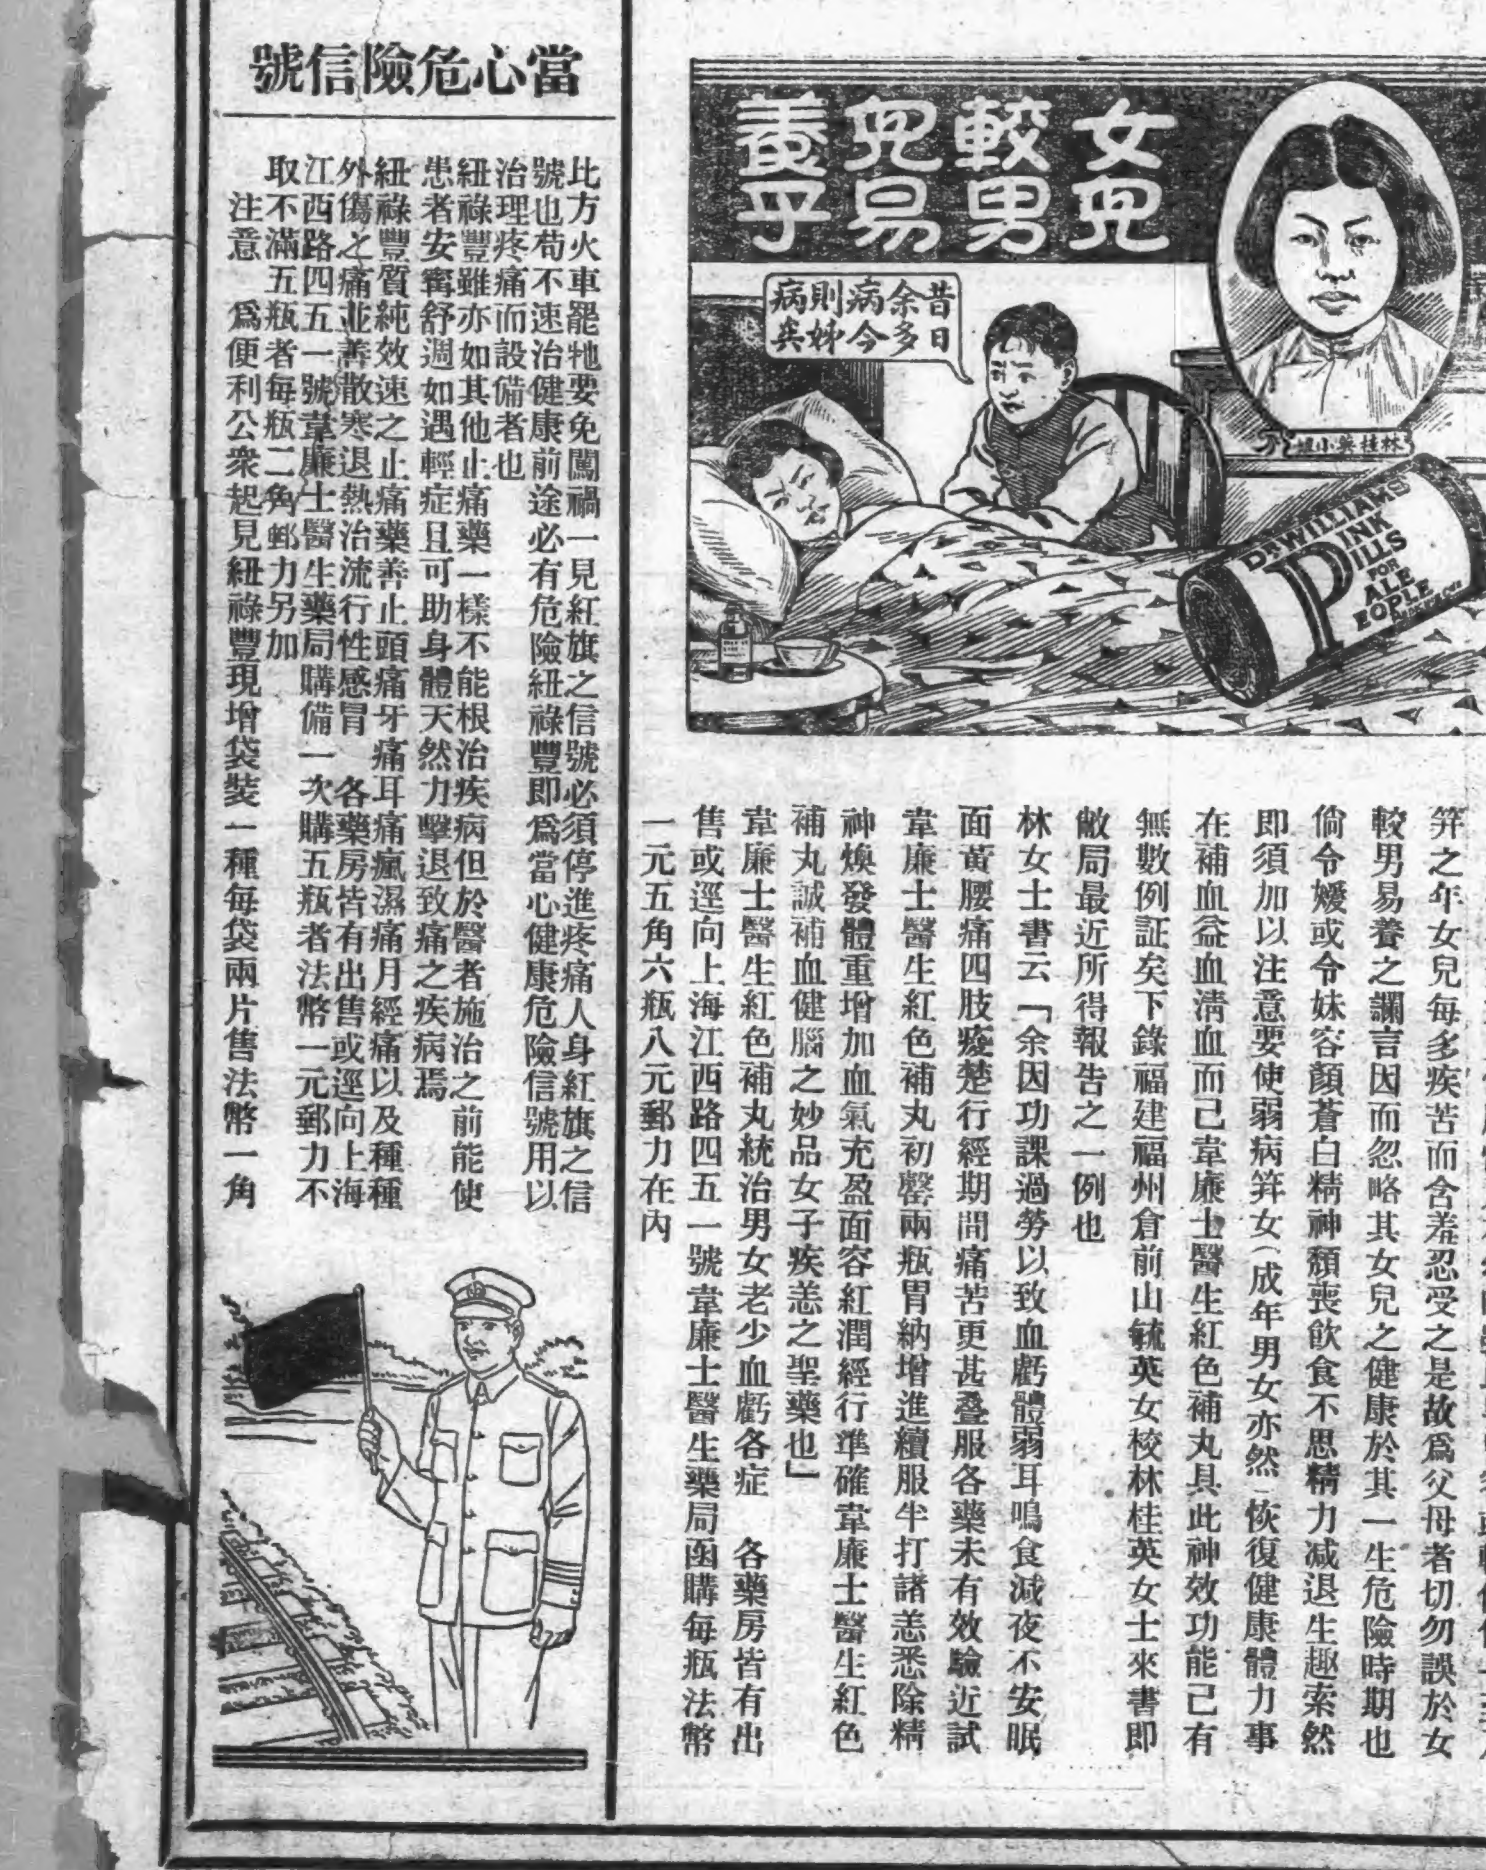 女兒
較男
兒易
養乎
林桂英小姐
昔日
余多
病今
則姊
病矣
DR WILLIAMS'
PINK
PILLS
FOR
PALE
PEOPLE
笄之年女兒每多疾苦而含羞忍受之是故爲父母者切勿誤於女
較男易養之讕言因而忽略其女兒之健康於其一生危險時期也
倘令嬡或令妹容顏蒼白精神頹喪飲食不思精力減退生趣索然
即須加以注意要使弱病笄女(成年男女亦然)恢復健康體力事
在補血益血淸血而已韋廉士醫生紅色補丸具此神效功能已有
無數例証矣下錄福建福州倉前山毓英女校林桂英女士來書即
敝局最近所得報告之一例也
林女士書云「余因功課過勞以致血虧體弱耳鳴食減夜不安眠
面黃腰痛四肢痠楚行經期間痛苦更甚叠服各藥未有效驗近試
韋廉士醫生紅色補丸初罄兩瓶胃納增進續服半打諸恙悉除精
神煥發體重增加血氣充盈面容紅潤經行準確韋廉士醫生紅色
補丸誠補血健腦之妙品女子疾恙之聖藥也」
韋廉士醫生紅色補丸統治男女老少血虧各症　各藥房皆有出
售或逕向上海江西路四五一號韋廉士醫生藥局函購每瓶法幣
一元五角六瓶八元郵力在內
當心危險信號
比方火車罷牠要免闖禍一見紅旗之信號必須停進疼痛人身紅旗之信
號也苟不速治健康前途必有危險紐祿豐即爲當心健康危險信號用以
治理疼痛而設備者也
紐祿豐雖亦如其他止痛藥一樣不能根治疾病但於醫者施治之前能使
患者安甯舒週如遇輕症且可助身體天然力擊退致痛之疾病焉
紐祿豐質純效速之止痛藥善止頭痛牙痛耳痛瘋濕痛月經痛以及種種
外傷之痛並善散寒退熱治流行性感冒　各藥房皆有出售或逕向上海
江西路四五一號韋廉士醫生藥局購備一次購五瓶者法幣一元郵力不
取不滿五瓶者每瓶二角郵力另加
注意　爲便利公衆起見紐祿豐現增袋裝一種每袋兩片售法幣一角